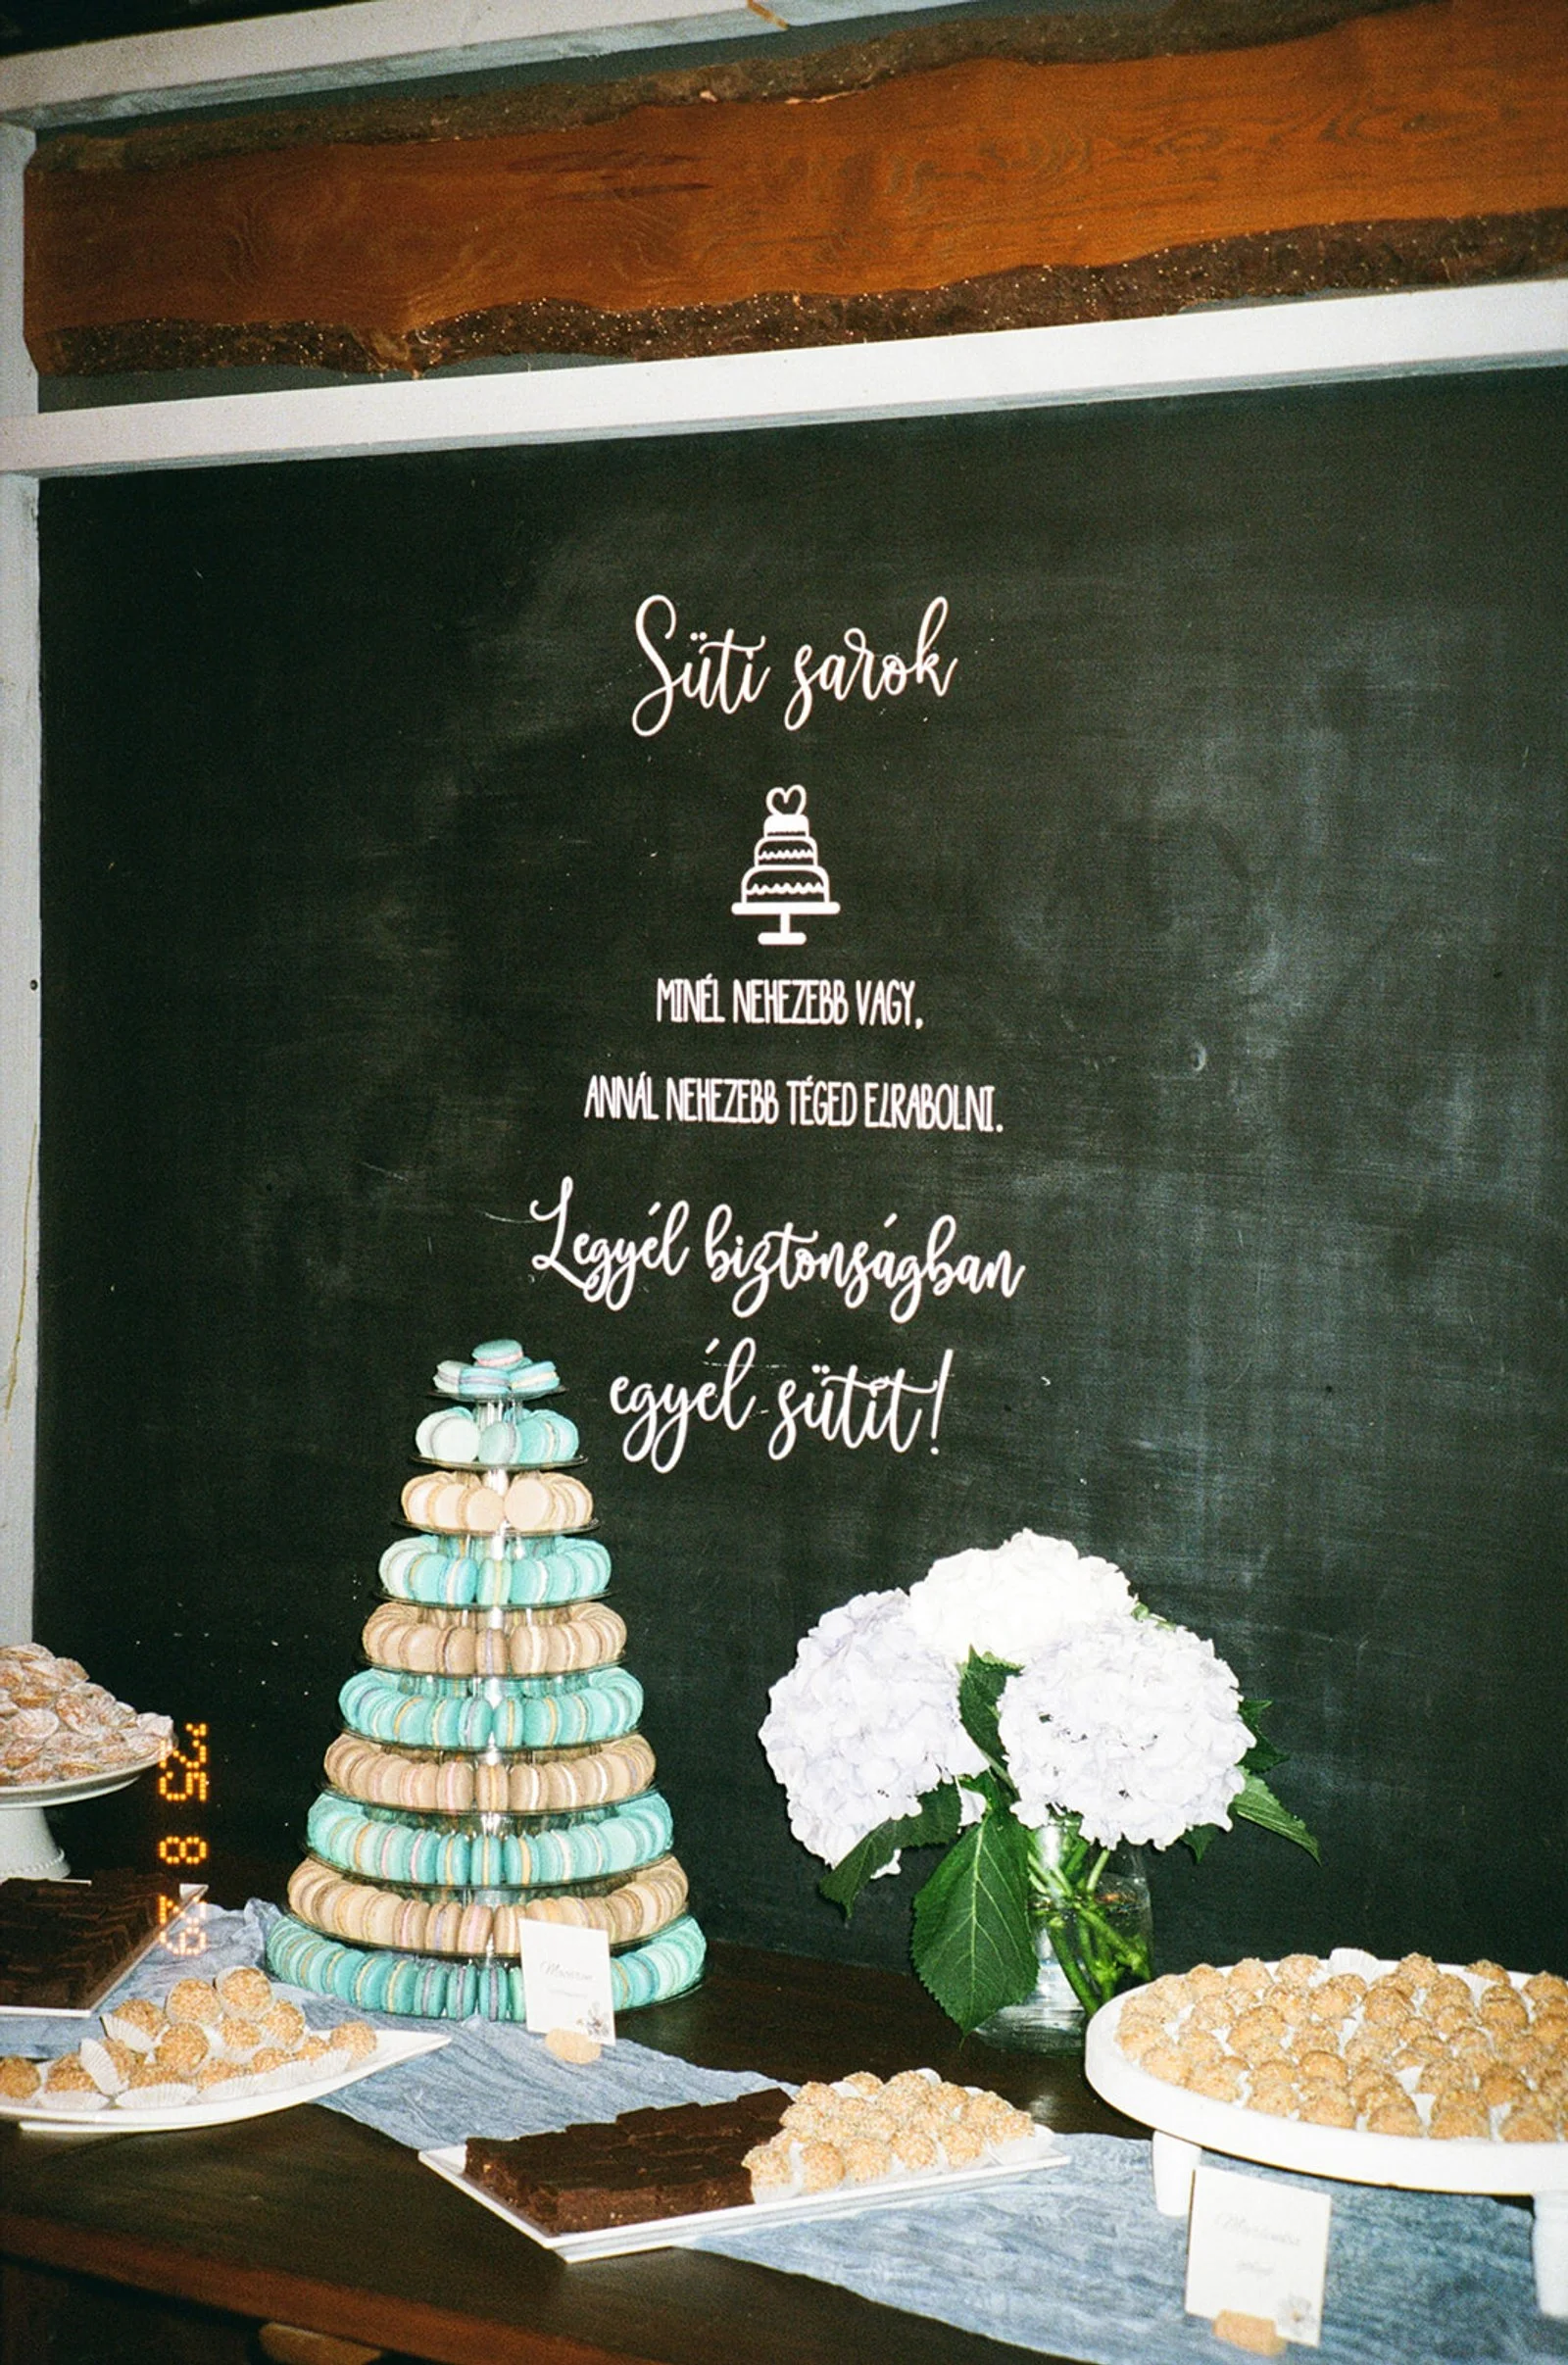 Süti sarok
MINÉL NEHEZEBB VAGY,
ANNÁL NEHEZEBB TÉGED ELRABOLNI.
Legyél biztonságban
egyél sütit!
'25 8 29
Macaron